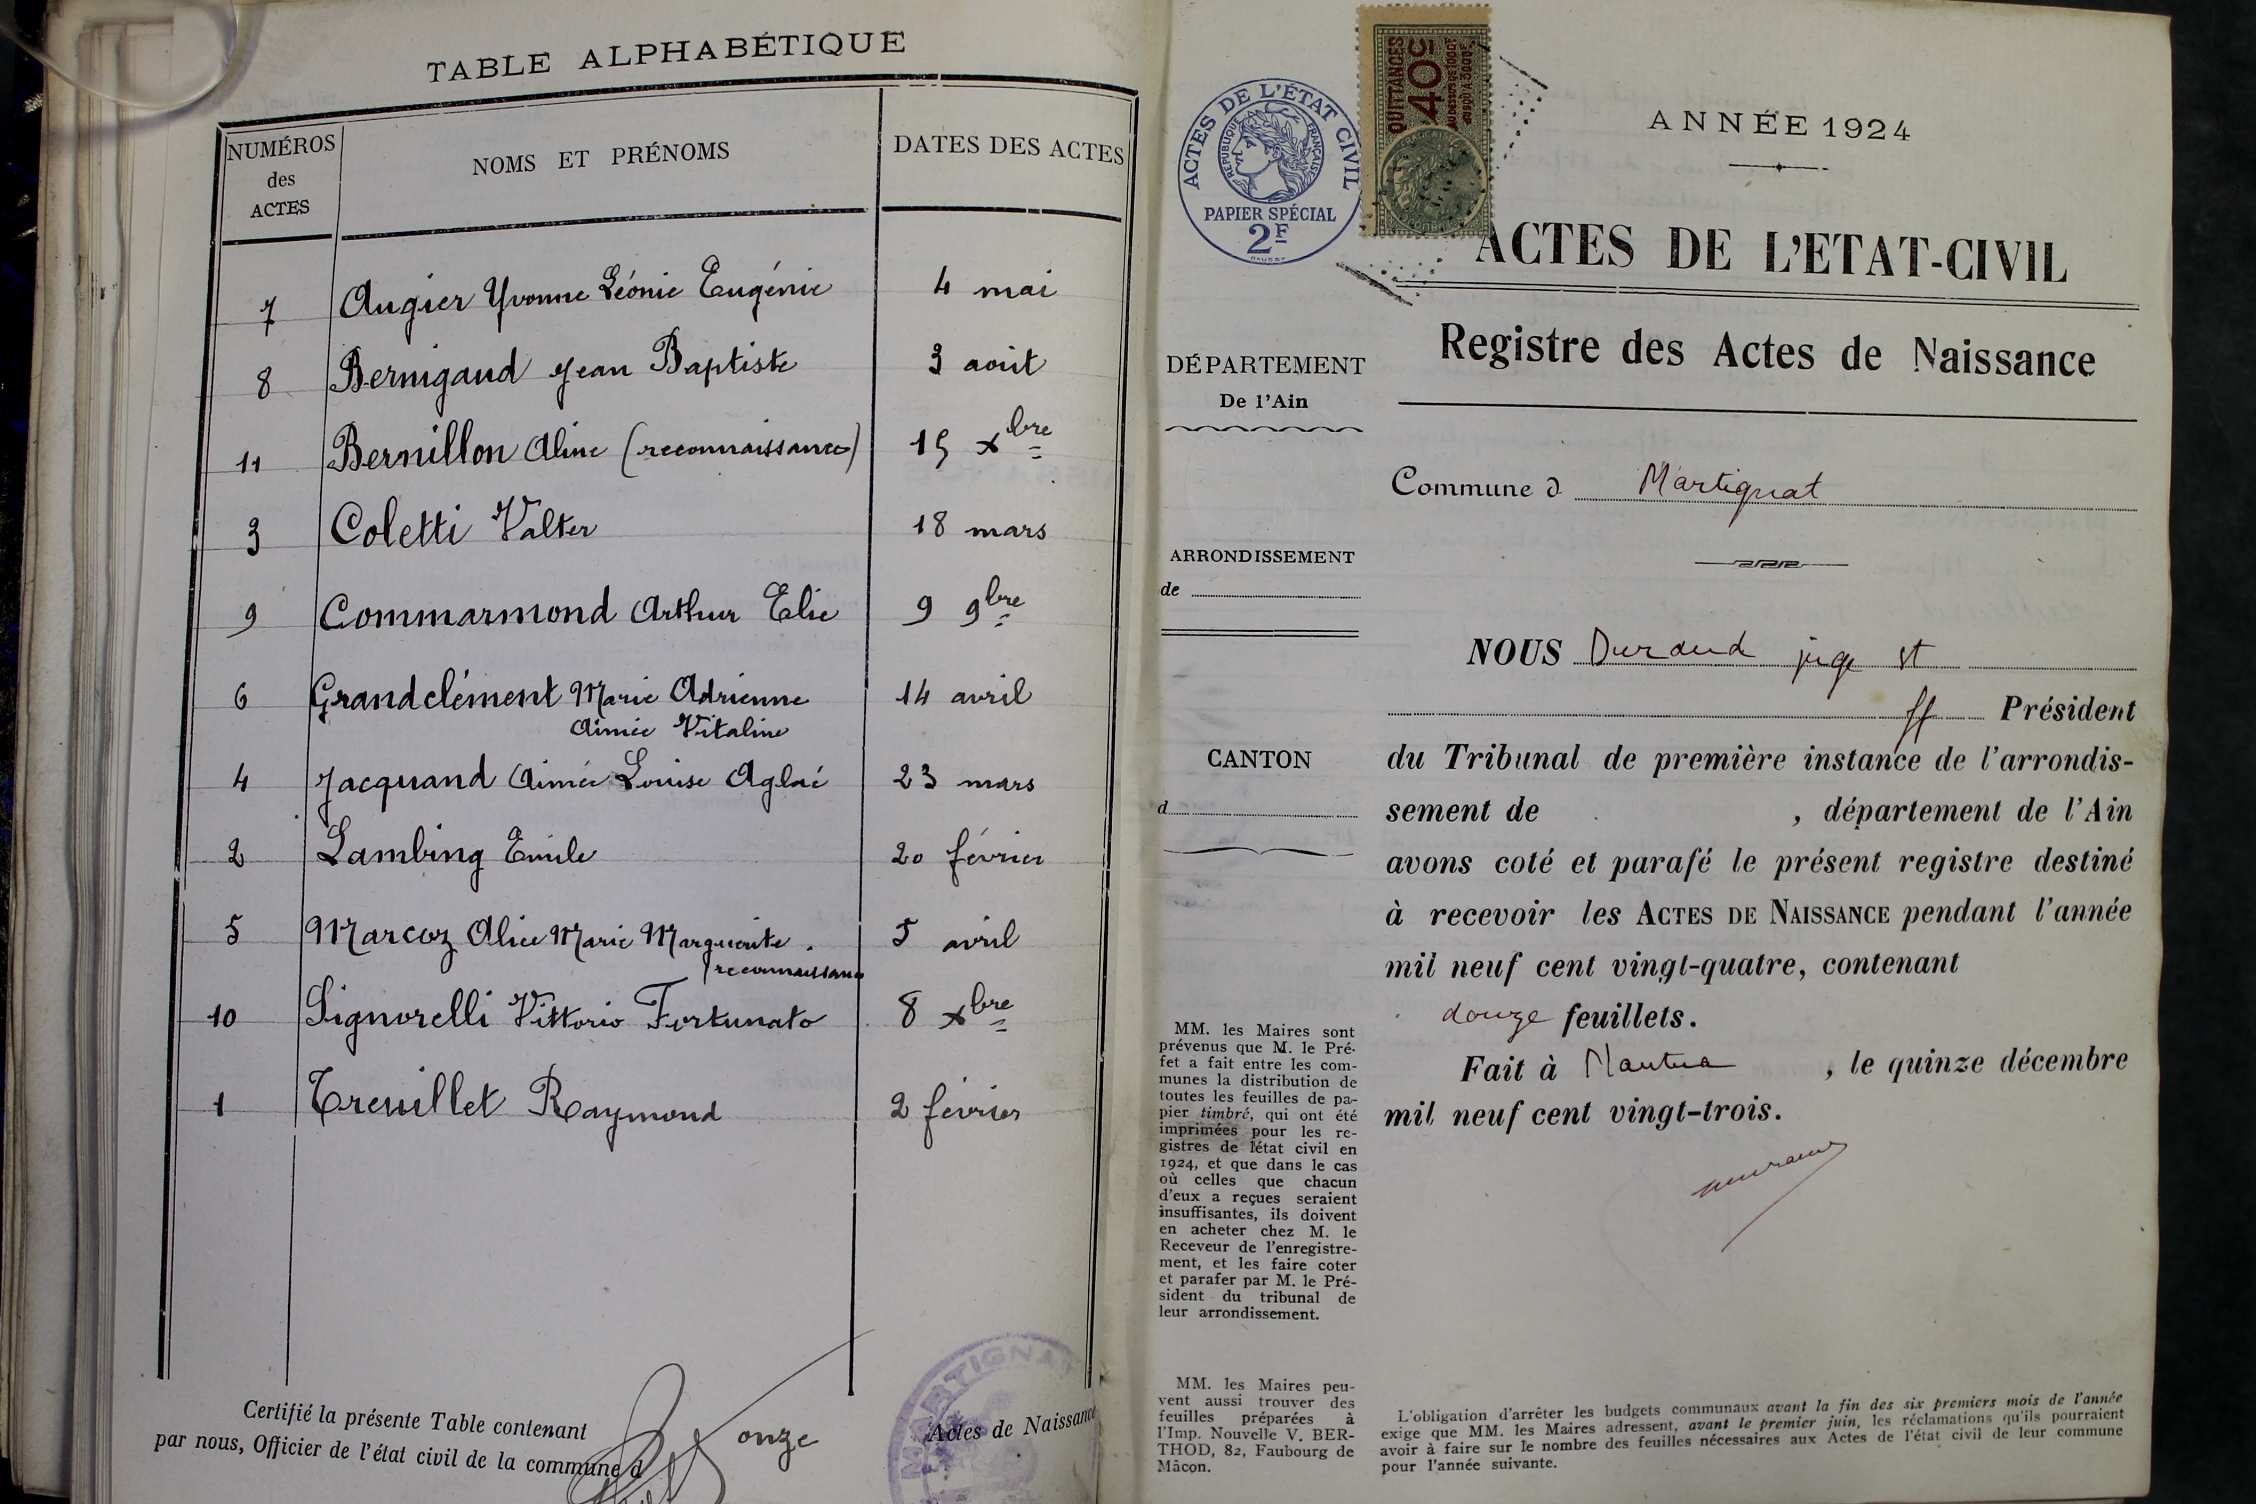 TABLE ALPHABÉTIQUE
NUMÉROS
des
ACTES
NOMS ET PRÉNOMS
DATES DES ACTES
7 Augier Yvonne Léonie Eugénie 4 mai
8 Bernigaud Jean Baptiste 3 août
11 Bernillon Aline (reconnaissance) 15 Xbre
3 Coletti Valter 18 mars
9 Commarmond Arthur Elie 9 9bre
6 Grandclément Marie Adrienne 14 avril
Aimée Vitaline
4 Jacquand Aimée Louise Aglaé 23 mars
2 Lambing Emile 20 février
5 Marcoz Alice Marie Marguerite. 5 avril
reconnaissance
10 Signorelli Vittorio Fortunato 8 Xbre
1 Treuillet Raymond 2 février
Certifié la présente Table contenant onze Actes de Naissance
par nous, Officier de l'état civil de la commune d
MARTIGNAT
ACTES DE L'ÉTAT CIVIL
RÉPUBLIQUE FRANÇAISE
PAPIER SPÉCIAL
2F
QUITTANCES
40c
ANNÉE 1924
ACTES DE L'ETAT-CIVIL
Registre des Actes de Naissance
DÉPARTEMENT
De l'Ain
Commune d Martignat
ARRONDISSEMENT
de
CANTON
d
NOUS Durand juge st
ff Président
du Tribunal de première instance de l'arrondis-
sement de , département de l'Ain
avons coté et parafé le présent registre destiné
à recevoir les ACTES DE NAISSANCE pendant l'année
mil neuf cent vingt-quatre, contenant
douze feuillets.
Fait à Nantua , le quinze décembre
mil neuf cent vingt-trois.
MM. les Maires sont
prévenus que M. le Pré-
fet a fait entre les com-
munes la distribution de
toutes les feuilles de pa-
pier timbré, qui ont été
imprimées pour les re-
gistres de l'état civil en
1924, et que dans le cas
où celles que chacun
d'eux a reçues seraient
insuffisantes, ils doivent
en acheter chez M. le
Receveur de l'enregistre-
ment, et les faire coter
et parafer par M. le Pré-
sident du tribunal de
leur arrondissement.
MM. les Maires peu-
vent aussi trouver des
feuilles préparées à
l'Imp. Nouvelle V. BER-
THOD, 82, Faubourg de
Mâcon.
L'obligation d'arrêter les budgets communaux avant la fin des six premiers mois de l'année
exige que MM. les Maires adressent, avant le premier juin, les réclamations qu'ils pourraient
avoir à faire sur le nombre des feuilles nécessaires aux Actes de l'état civil de leur commune
pour l'année suivante.